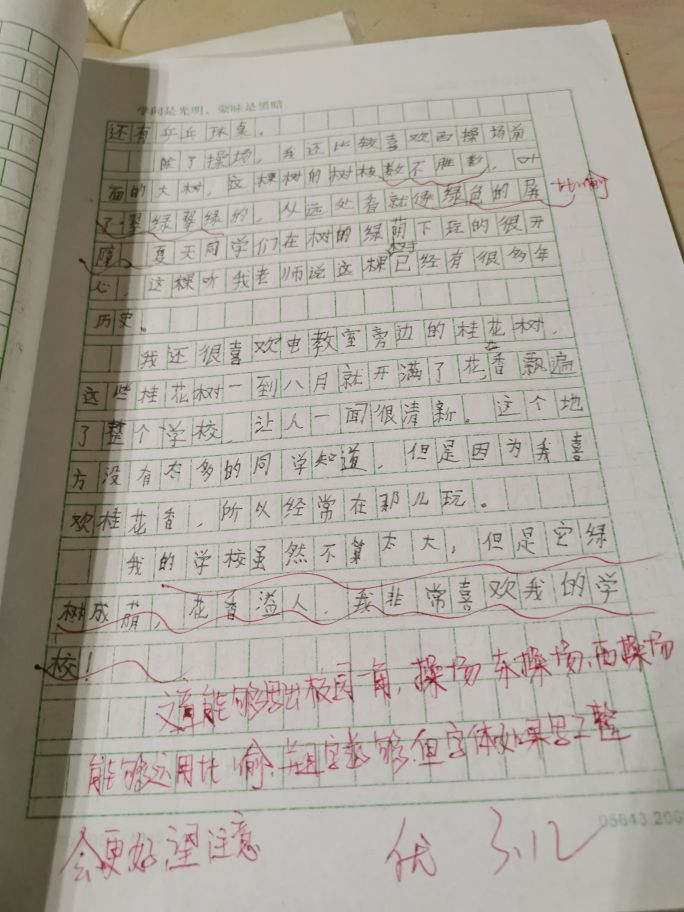 学问是光明，蒙昧是黑暗
还有乒乓球桌。
除了操场，我还比较喜欢西操场前
面的大树，这棵树的树枝数不胜数，叶
了翠绿翠绿的，从远处看就像绿色的屏
比喻
障。夏天同学们在树的绿荫下玩的很开
树
心，这棵听我老师说这棵已经有很多年
历史。
我还很喜欢电教室旁边的桂花树，
这些桂花树一到八月就开满了花，香飘遍
了整个学校，让人一闻很清新。这个地
方没有太多的同学知道，但是因为我喜
欢桂花香，所以经常在那儿玩。
我的学校虽然不算太大，但是它绿
树成荫，花香溢人，我非常喜欢我的学
校！
文章能够写出校园一角，操场 东操场、西操场
能够运用比喻，字数够，但字体如果写工整
会更好 望注意
优 3.12
05643.200